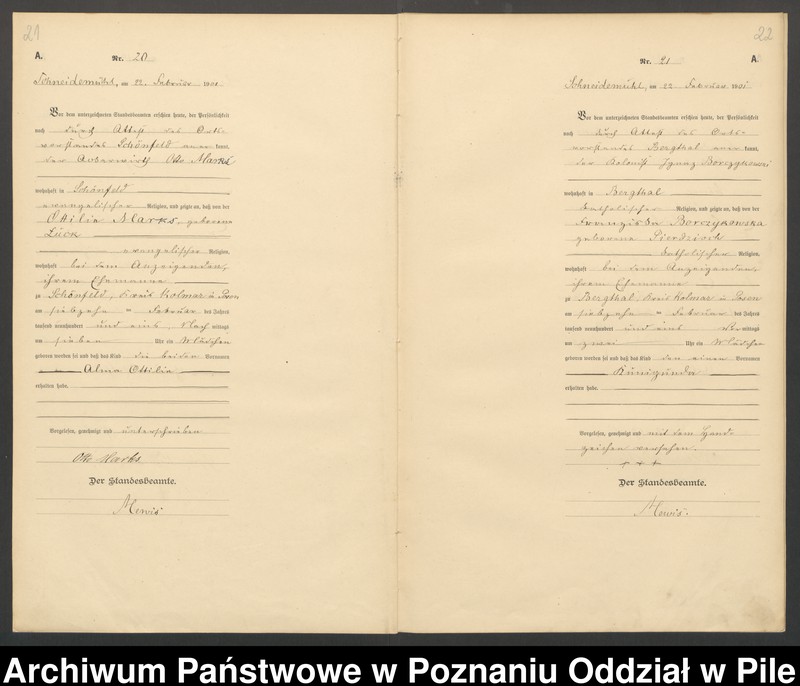 21
A.
Nr. 20
Schneidemühl, am 22. Februar 1901
Vor dem unterzeichneten Standesbeamten erschien heute, der Persönlichkeit
nach durch Attest des Orts-
vorstandes Schönfeld anerkannt,
der Otto Marks
wohnhaft in Schönfeld
evangelischer Religion, und zeigte an, daß von der
Ottilie Marks geborene
Lück
evangelischer Religion,
wohnhaft bei dem Anzeigenden,
ihrem Ehemanne
zu Schönfeld, Kreis Kolmar in Posen
am siebzehn ten Februar des Jahres
tausend neunhundert und eins, Nachmittags
um sieben Uhr ein Mädchen
geboren worden sei und daß das Kind die beiden Vornamen
Alma Ottilie
erhalten habe.
Vorgelesen, genehmigt und unterschrieben
Otto Marks
Der Standesbeamte.
Mewis
22
A.
Nr. 21
Schneidemühl, am 22 Februar 1901
Vor dem unterzeichneten Standesbeamten erschien heute, der Persönlichkeit
nach durch Attest des Orts-
vorstandes Bergthal anerkannt,
der Kolonist Ignaz Borczykowski
wohnhaft in Bergthal
katholischer Religion, und zeigte an, daß von der
Franziska Borczykowska
geborene Pierdzioch
katholischer Religion,
wohnhaft bei dem Anzeigenden,
ihrem Ehemanne
zu Bergthal, Kreis Kolmar in Posen
am siebzehn ten Februar des Jahres
tausend neunhundert und eins Vormittags
um zwei Uhr ein Mädchen
geboren worden sei und daß das Kind den einen Vornamen
Kunigunda
erhalten habe.
Vorgelesen, genehmigt und mit dem Hand-
zeichen versehen.
+ + +
Der Standesbeamte.
Mewis.
Archiwum Państwowe w Poznaniu Oddział w Pile